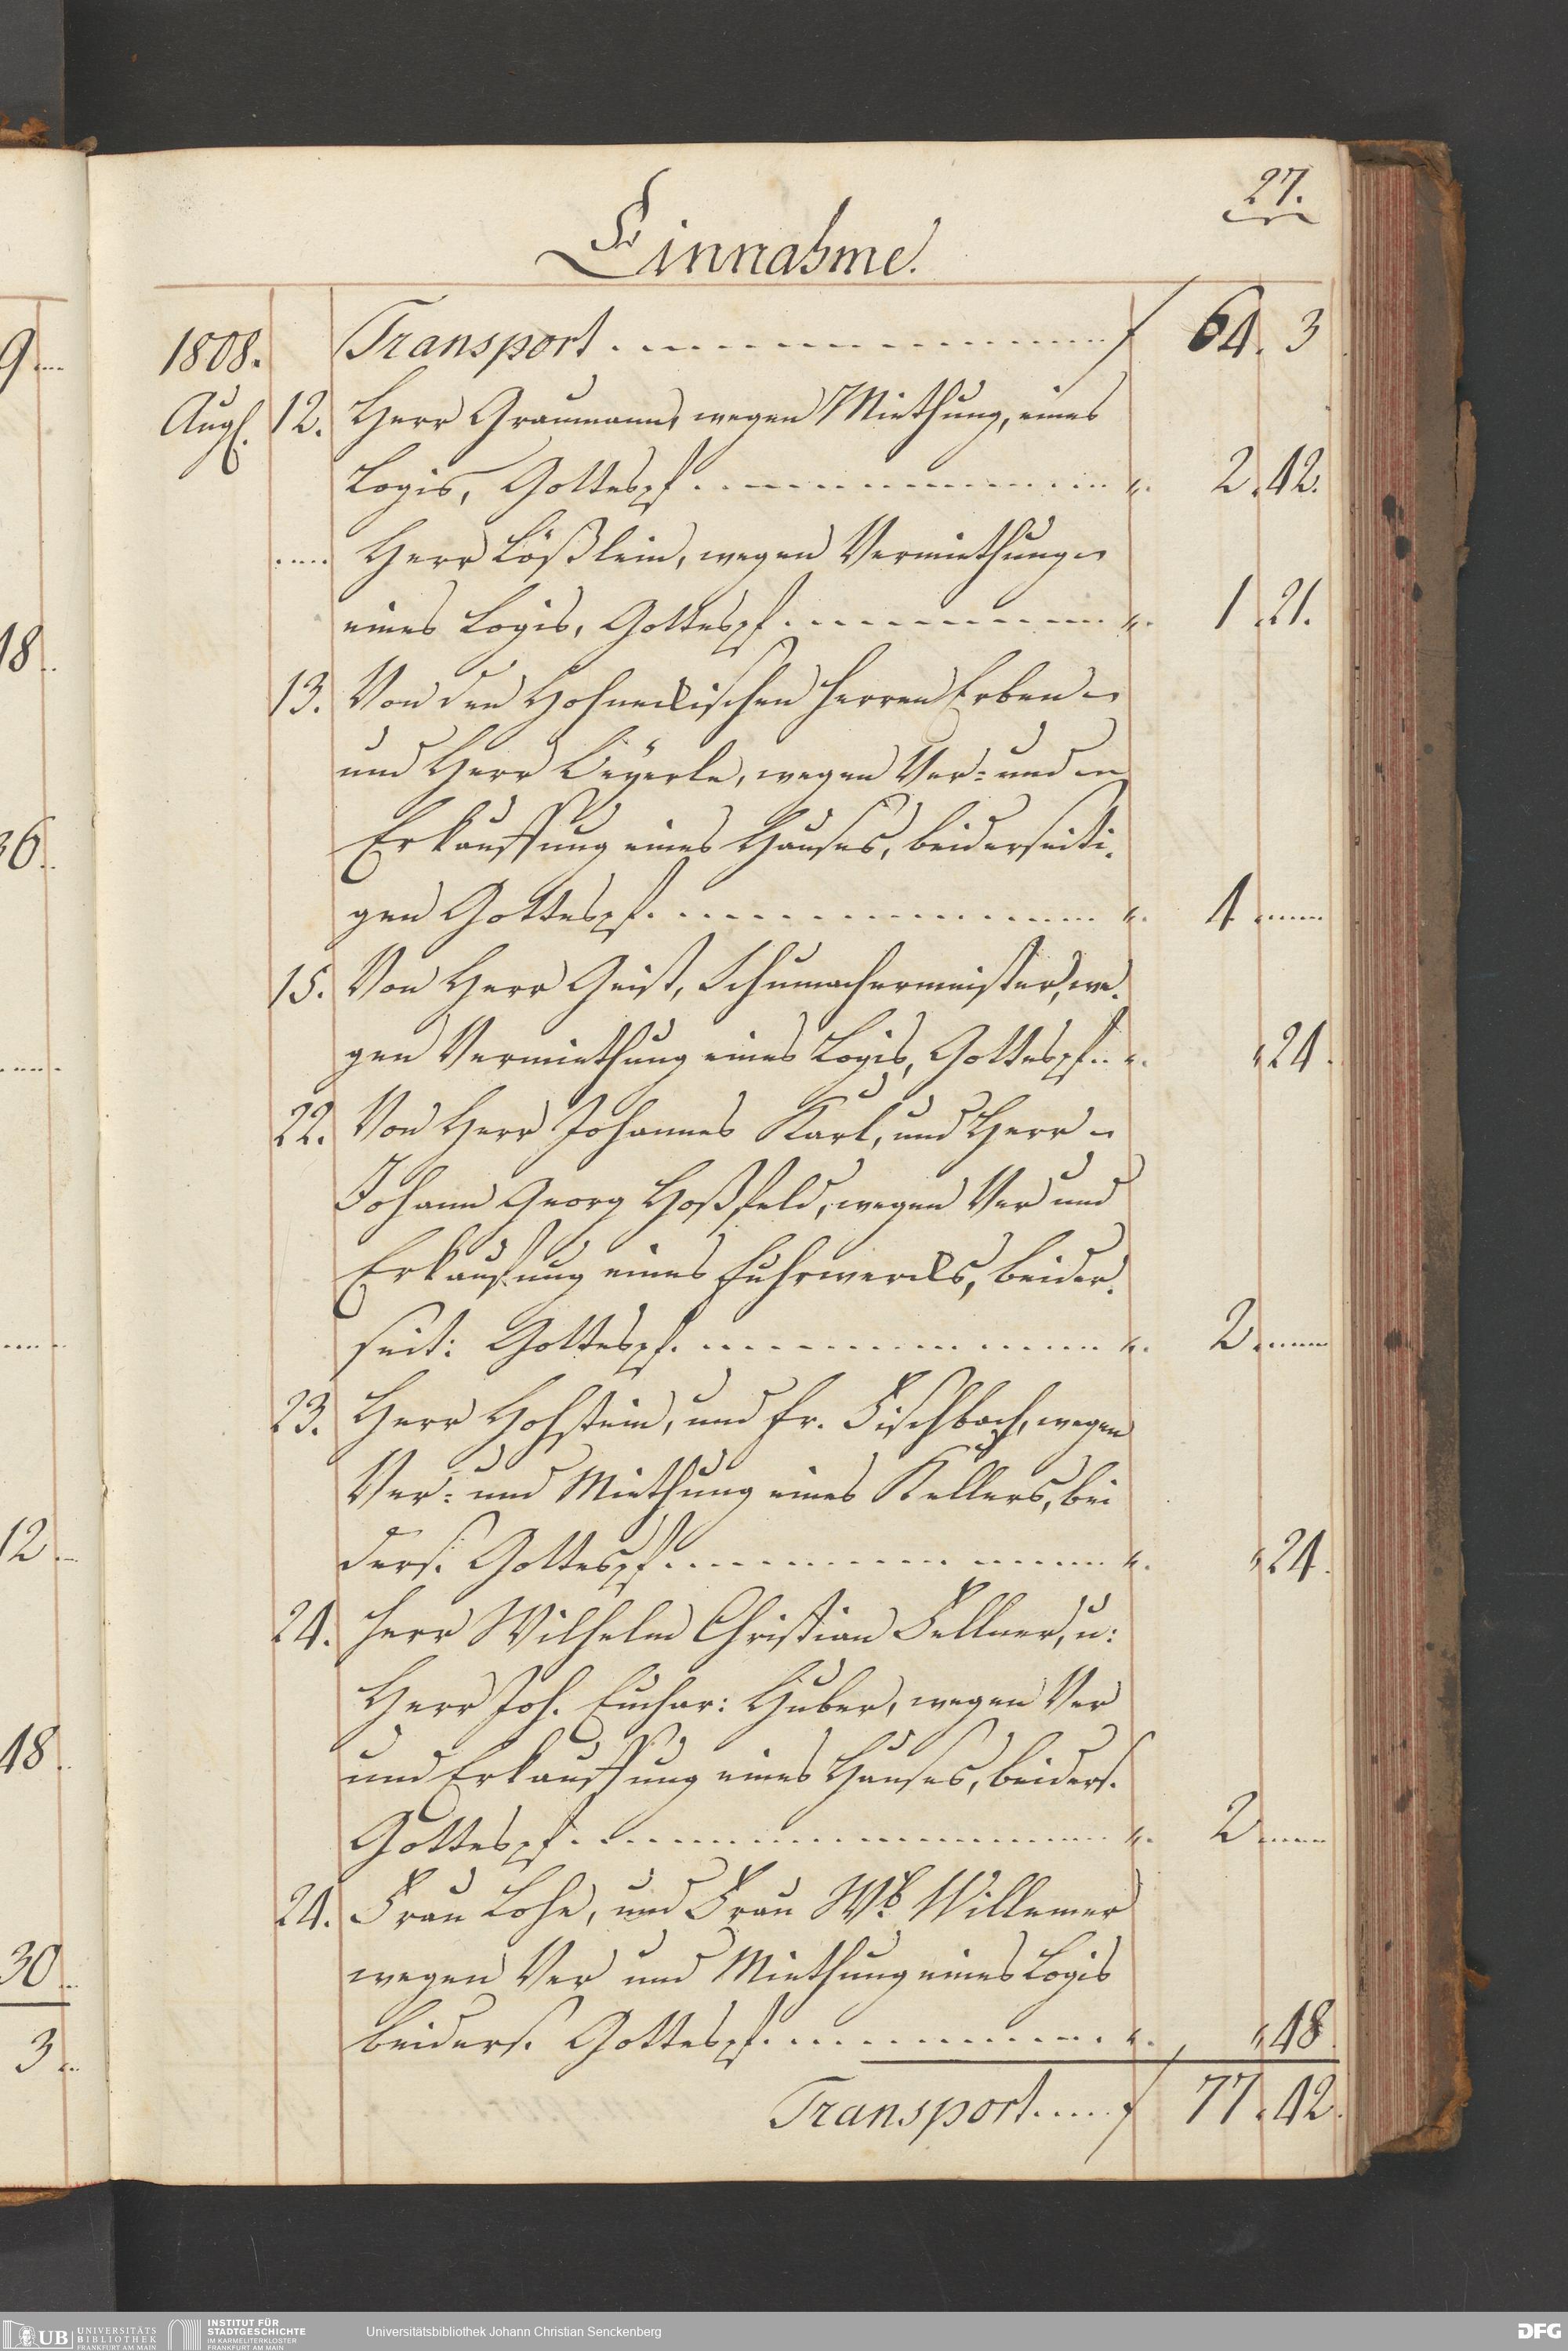 27.
Einnahme.
1808. Transport f 64. 3
Augl. 12. Herr Graumann, wegen Miethung, eines
Logis, Gottespf. 2. 42.
Herr Lößlein, wegen Vermiethung
eines Logis, Gottespf. 1. 21.
13. Von den Hohneckischen Herren Erben
und Herr Beyerle, wegen Ver- und
Erkauffung eines Hauses, beiderseiti-
gen Gottespf. 4
15. Von Herr Geist, Schumachermeister, we-
gen Vermiethung eines Logis, Gottespf. 24.
22. Von Herr Johannes Karl, und Herr
Johann Georg Hoßfeld, wegen Ver und
Erkaufung eines Fuhrwercks, beider-
seit: Gottespf. 2
23. Herr Hohstein, und Fr. Fischbach, wegen
Ver- und Miethung eines Kellers, bei
ders. Gottespf. 24.
24. Herr Wilhelm Christian Fellner, u:
Herr Joh. Euchar: Huber, wegen Ver
und Erkauffung eines Hauses, beiders.
Gottespf. 2
24. Frau Lohe, und Frau Wb. Willemer
wegen Ver und Miethung eines Logis
beiders. Gottespf. 48.
Transport f 77. 42.
9
18
36
12
48
30
3
UB UNIVERSITÄTS BIBLIOTHEK FRANKFURT AM MAIN
INSTITUT FÜR STADTGESCHICHTE IM KARMELITERKLOSTER FRANKFURT AM MAIN
Universitätsbibliothek Johann Christian Senckenberg
DFG